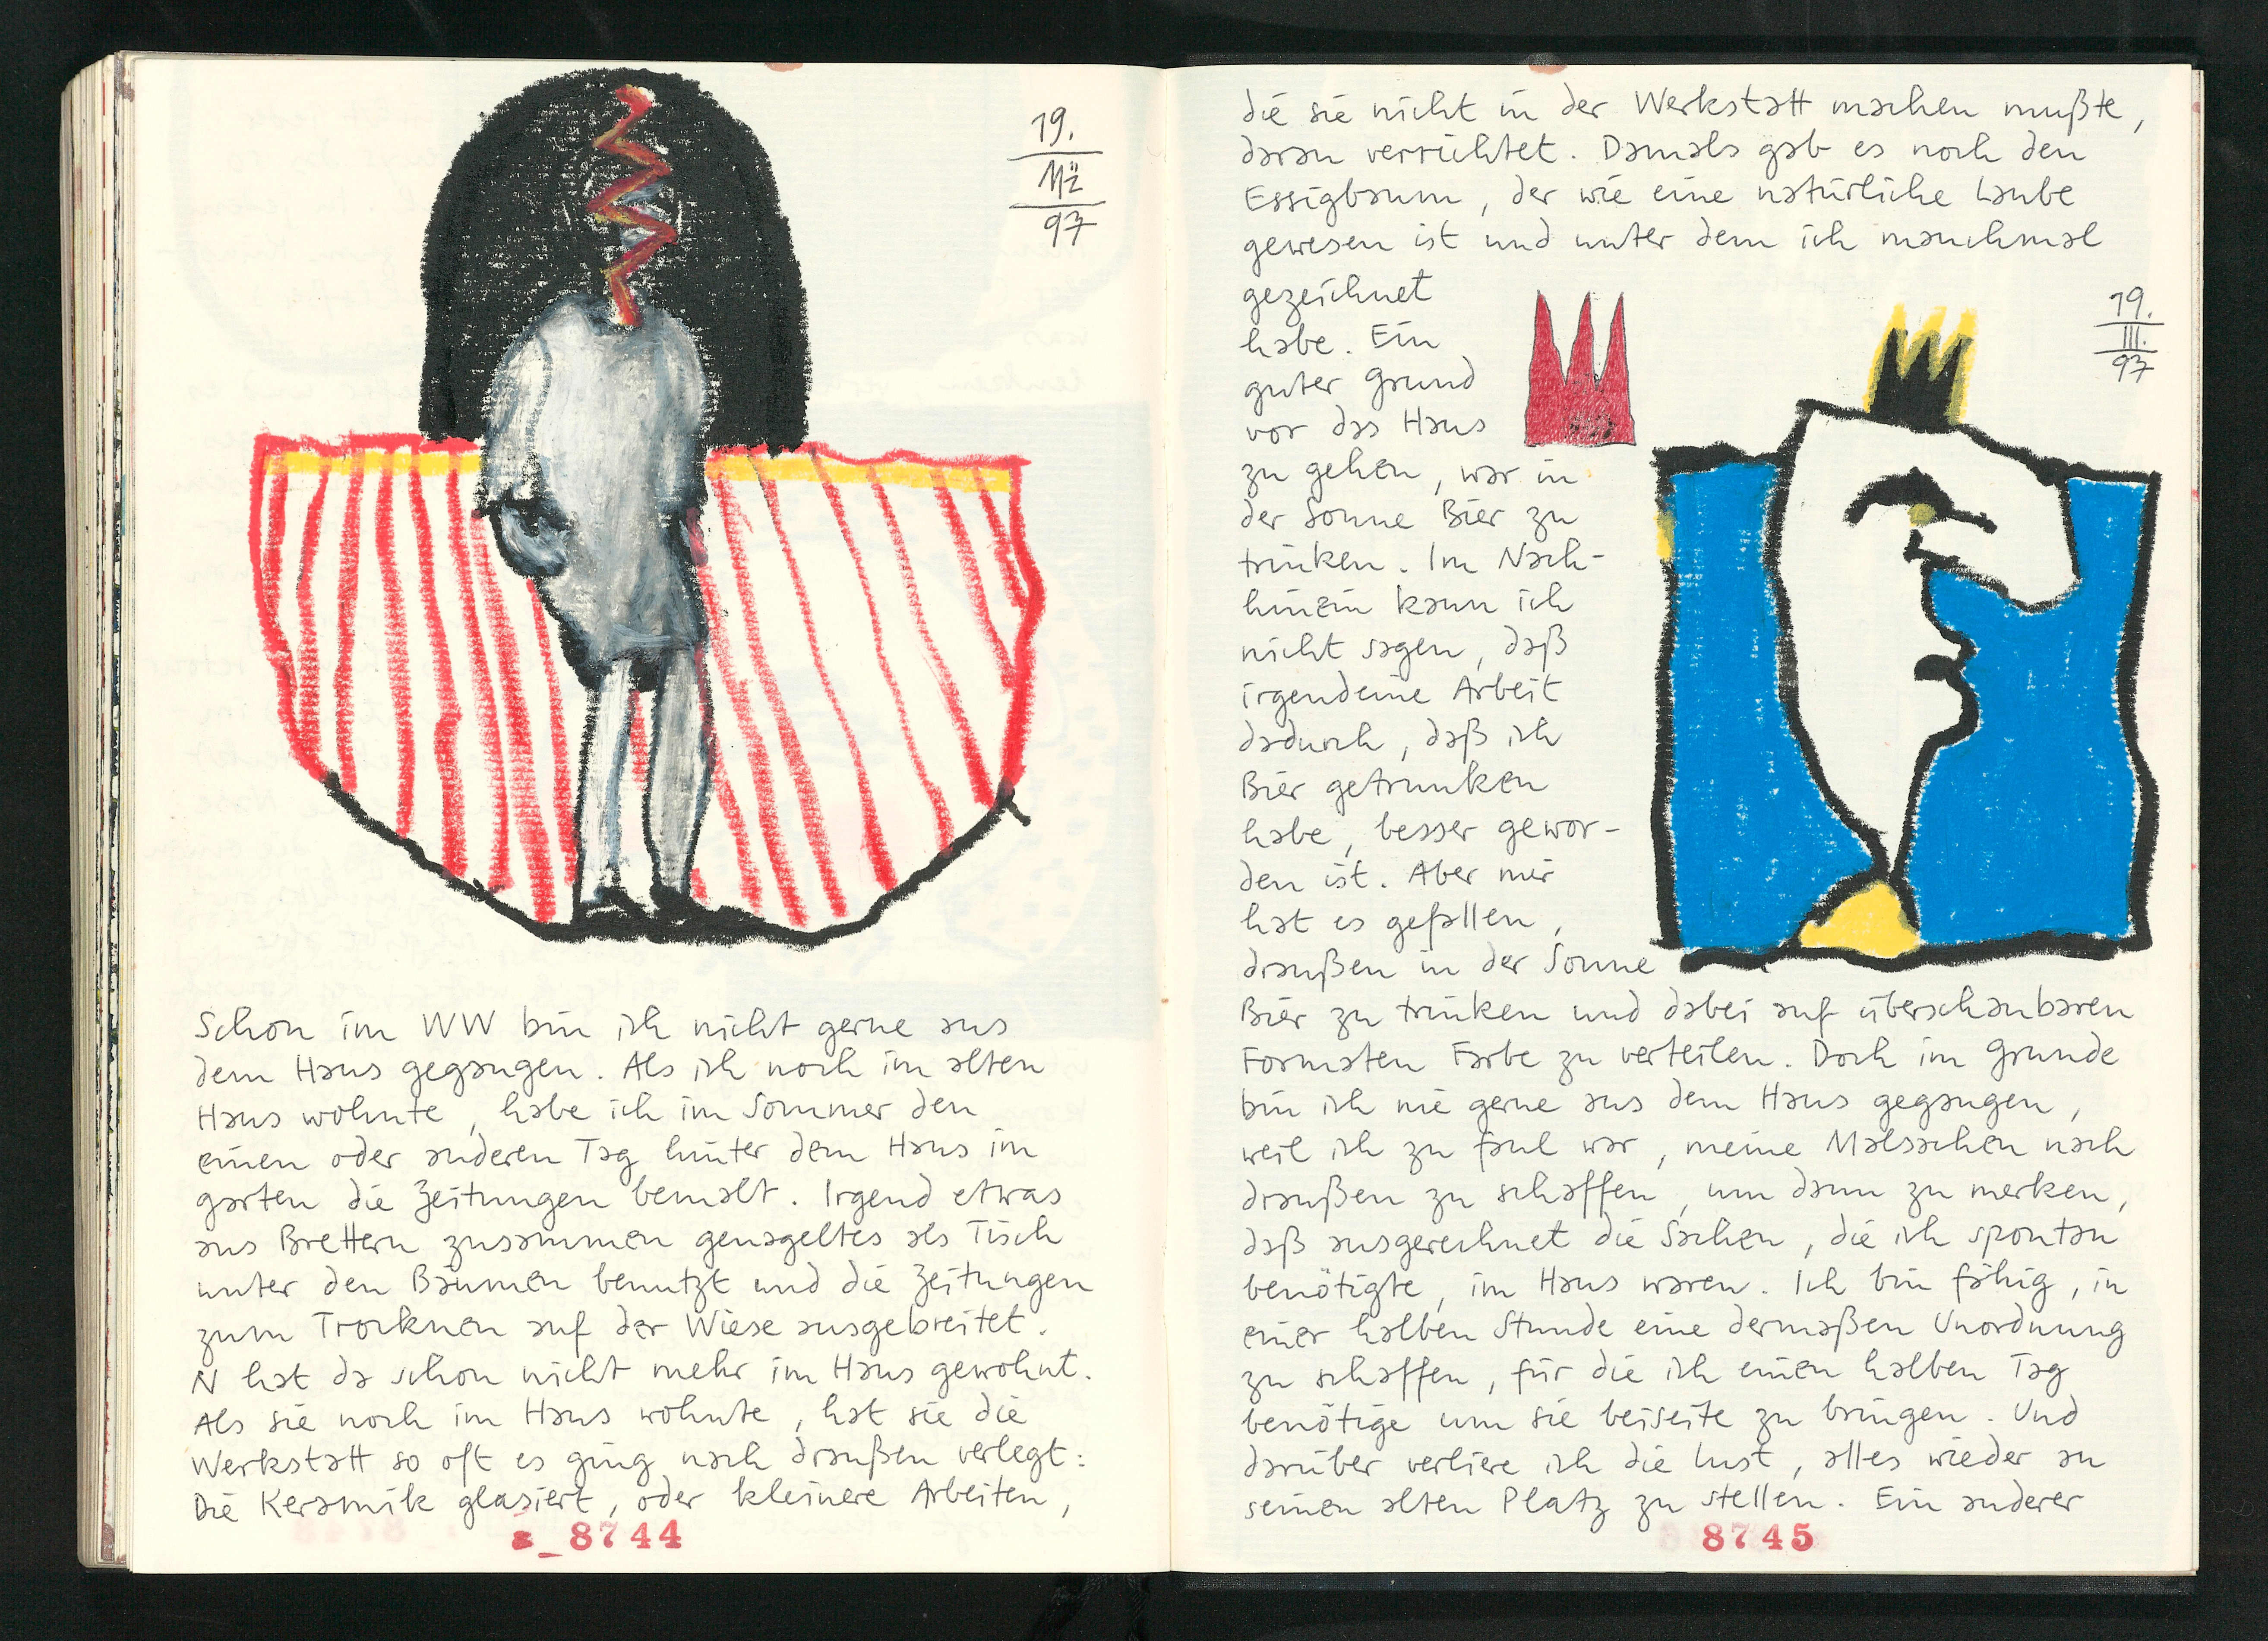 19.
Mz
97
Schon im WW bin ich nicht gerne aus
dem Haus gegangen. Als ich noch im alten
Haus wohnte, habe ich im Sommer den
einen oder anderen Tag hinter dem Haus im
Garten die Zeitungen bemalt. Irgend etwas
aus Brettern zusammen genageltes als Tisch
unter den Bäumen benutzt und die Zeitungen
zum Trocknen auf der Wiese ausgebreitet.
N hat da schon nicht mehr im Haus gewohnt.
Als sie noch im Haus wohnte, hat sie die
Werkstatt so oft es ging nach draußen verlegt:
Die Keramik glasiert, oder kleinere Arbeiten,
8744
die sie nicht in der Werkstatt machen mußte,
daran verrichtet. Damals gab es noch den
Essigbaum, der wie eine natürliche Laube
gewesen ist und unter dem ich manchmal
gezeichnet
habe. Ein
guter Grund
vor das Haus
zu gehen, war in
der Sonne Bier zu
trinken. Im Nach-
hinein kann ich
nicht sagen, daß
irgendeine Arbeit
dadurch, daß ich
Bier getrunken
habe, besser gewor-
den ist. Aber mir
hat es gefallen,
draußen in der Sonne
Bier zu trinken und dabei auf überschaubaren
Formaten Farbe zu verteilen. Doch im Grunde
bin ich nie gerne aus dem Haus gegangen,
weil ich zu faul war, meine Malsachen nach
draußen zu schaffen, um dann zu merken,
daß ausgerechnet die Sachen, die ich spontan
benötigte, im Haus waren. Ich bin fähig, in
einer halben Stunde eine dermaßen Unordnung
zu schaffen, für die ich einen halben Tag
benötige um sie beiseite zu bringen. Und
darüber verliere ich die Lust, alles wieder an
seinen alten Platz zu stellen. Ein anderer
19.
III.
97
8745